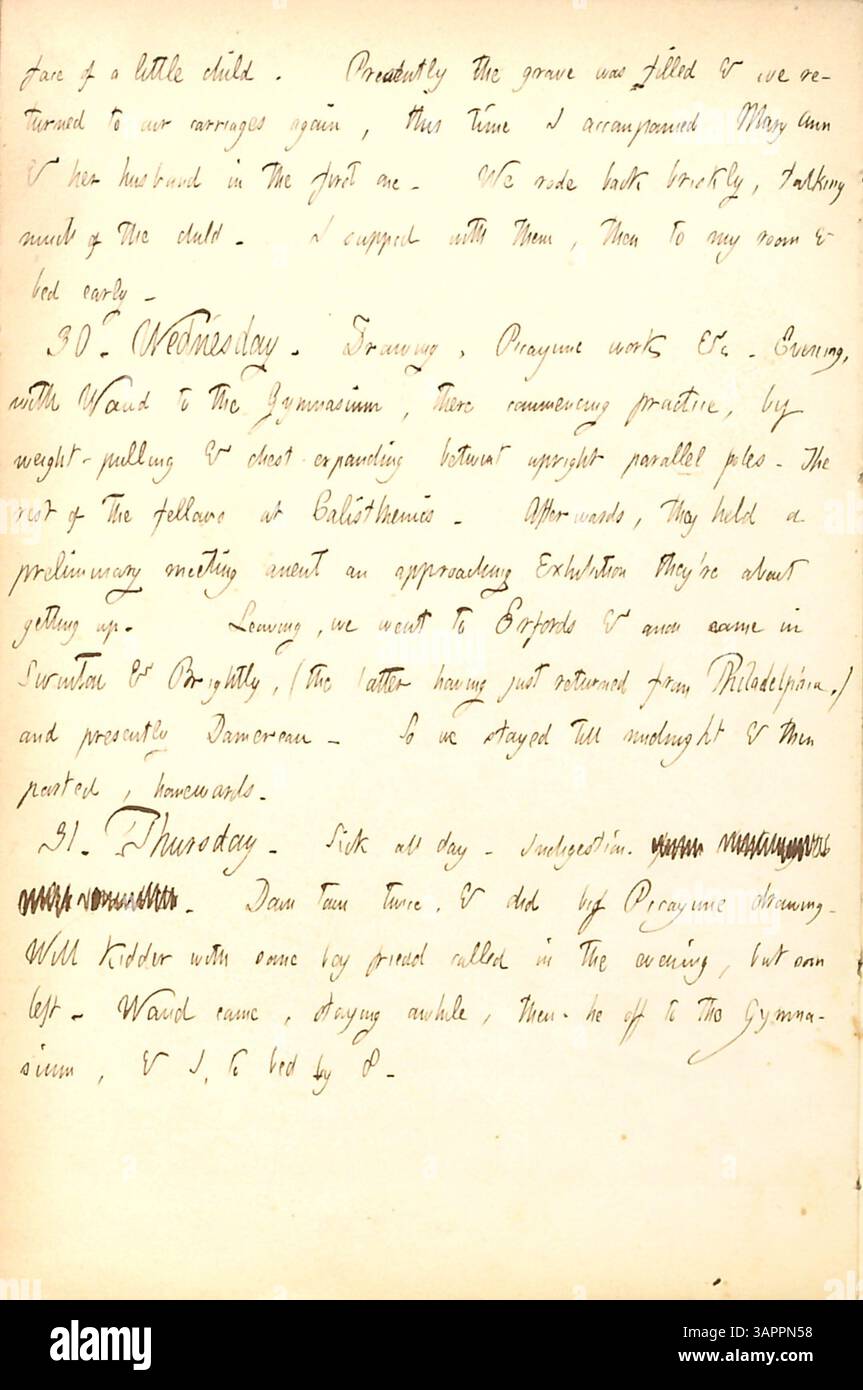 face of a little child. Presently the grave was filled & we re-
turned to our carriages again, this time I accompanied Mary Ann
& her husband in the first one. We rode back briskly, talking
much of the child. I supped with them, then to my room &
bed early.
30. Wednesday. Drawing, Picayune work &c. Evening,
with Waud to the Gymnasium, there commencing practice, by
weight-pulling & chest expanding betwixt upright parallel poles. The
rest of the fellows at Calisthenics. Afterwards, they held a
preliminary meeting anent an approaching Exhibition they're about
getting up. Leaving, we went to Erfords & anon came in
Swinton & Brightly, (the latter having just returned from Philadelphia,)
and presently Damereau. So we stayed till midnight & then
parted, homewards.
31. Thursday. Sick all day. Indigestion.
Down town twice, & did Picayune drawing.
Will Kidder with some boy friend called in the evening, but soon
left. Waud came, staying awhile, then he off to the Gymna-
sium, & I, to bed by 8.
alamy
Image ID: 3APPN58
www.alamy.com